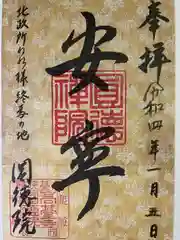 奉拝 令和四年一月五日
安寧
圓德院
北政所ねね様終焉の地
圓徳院